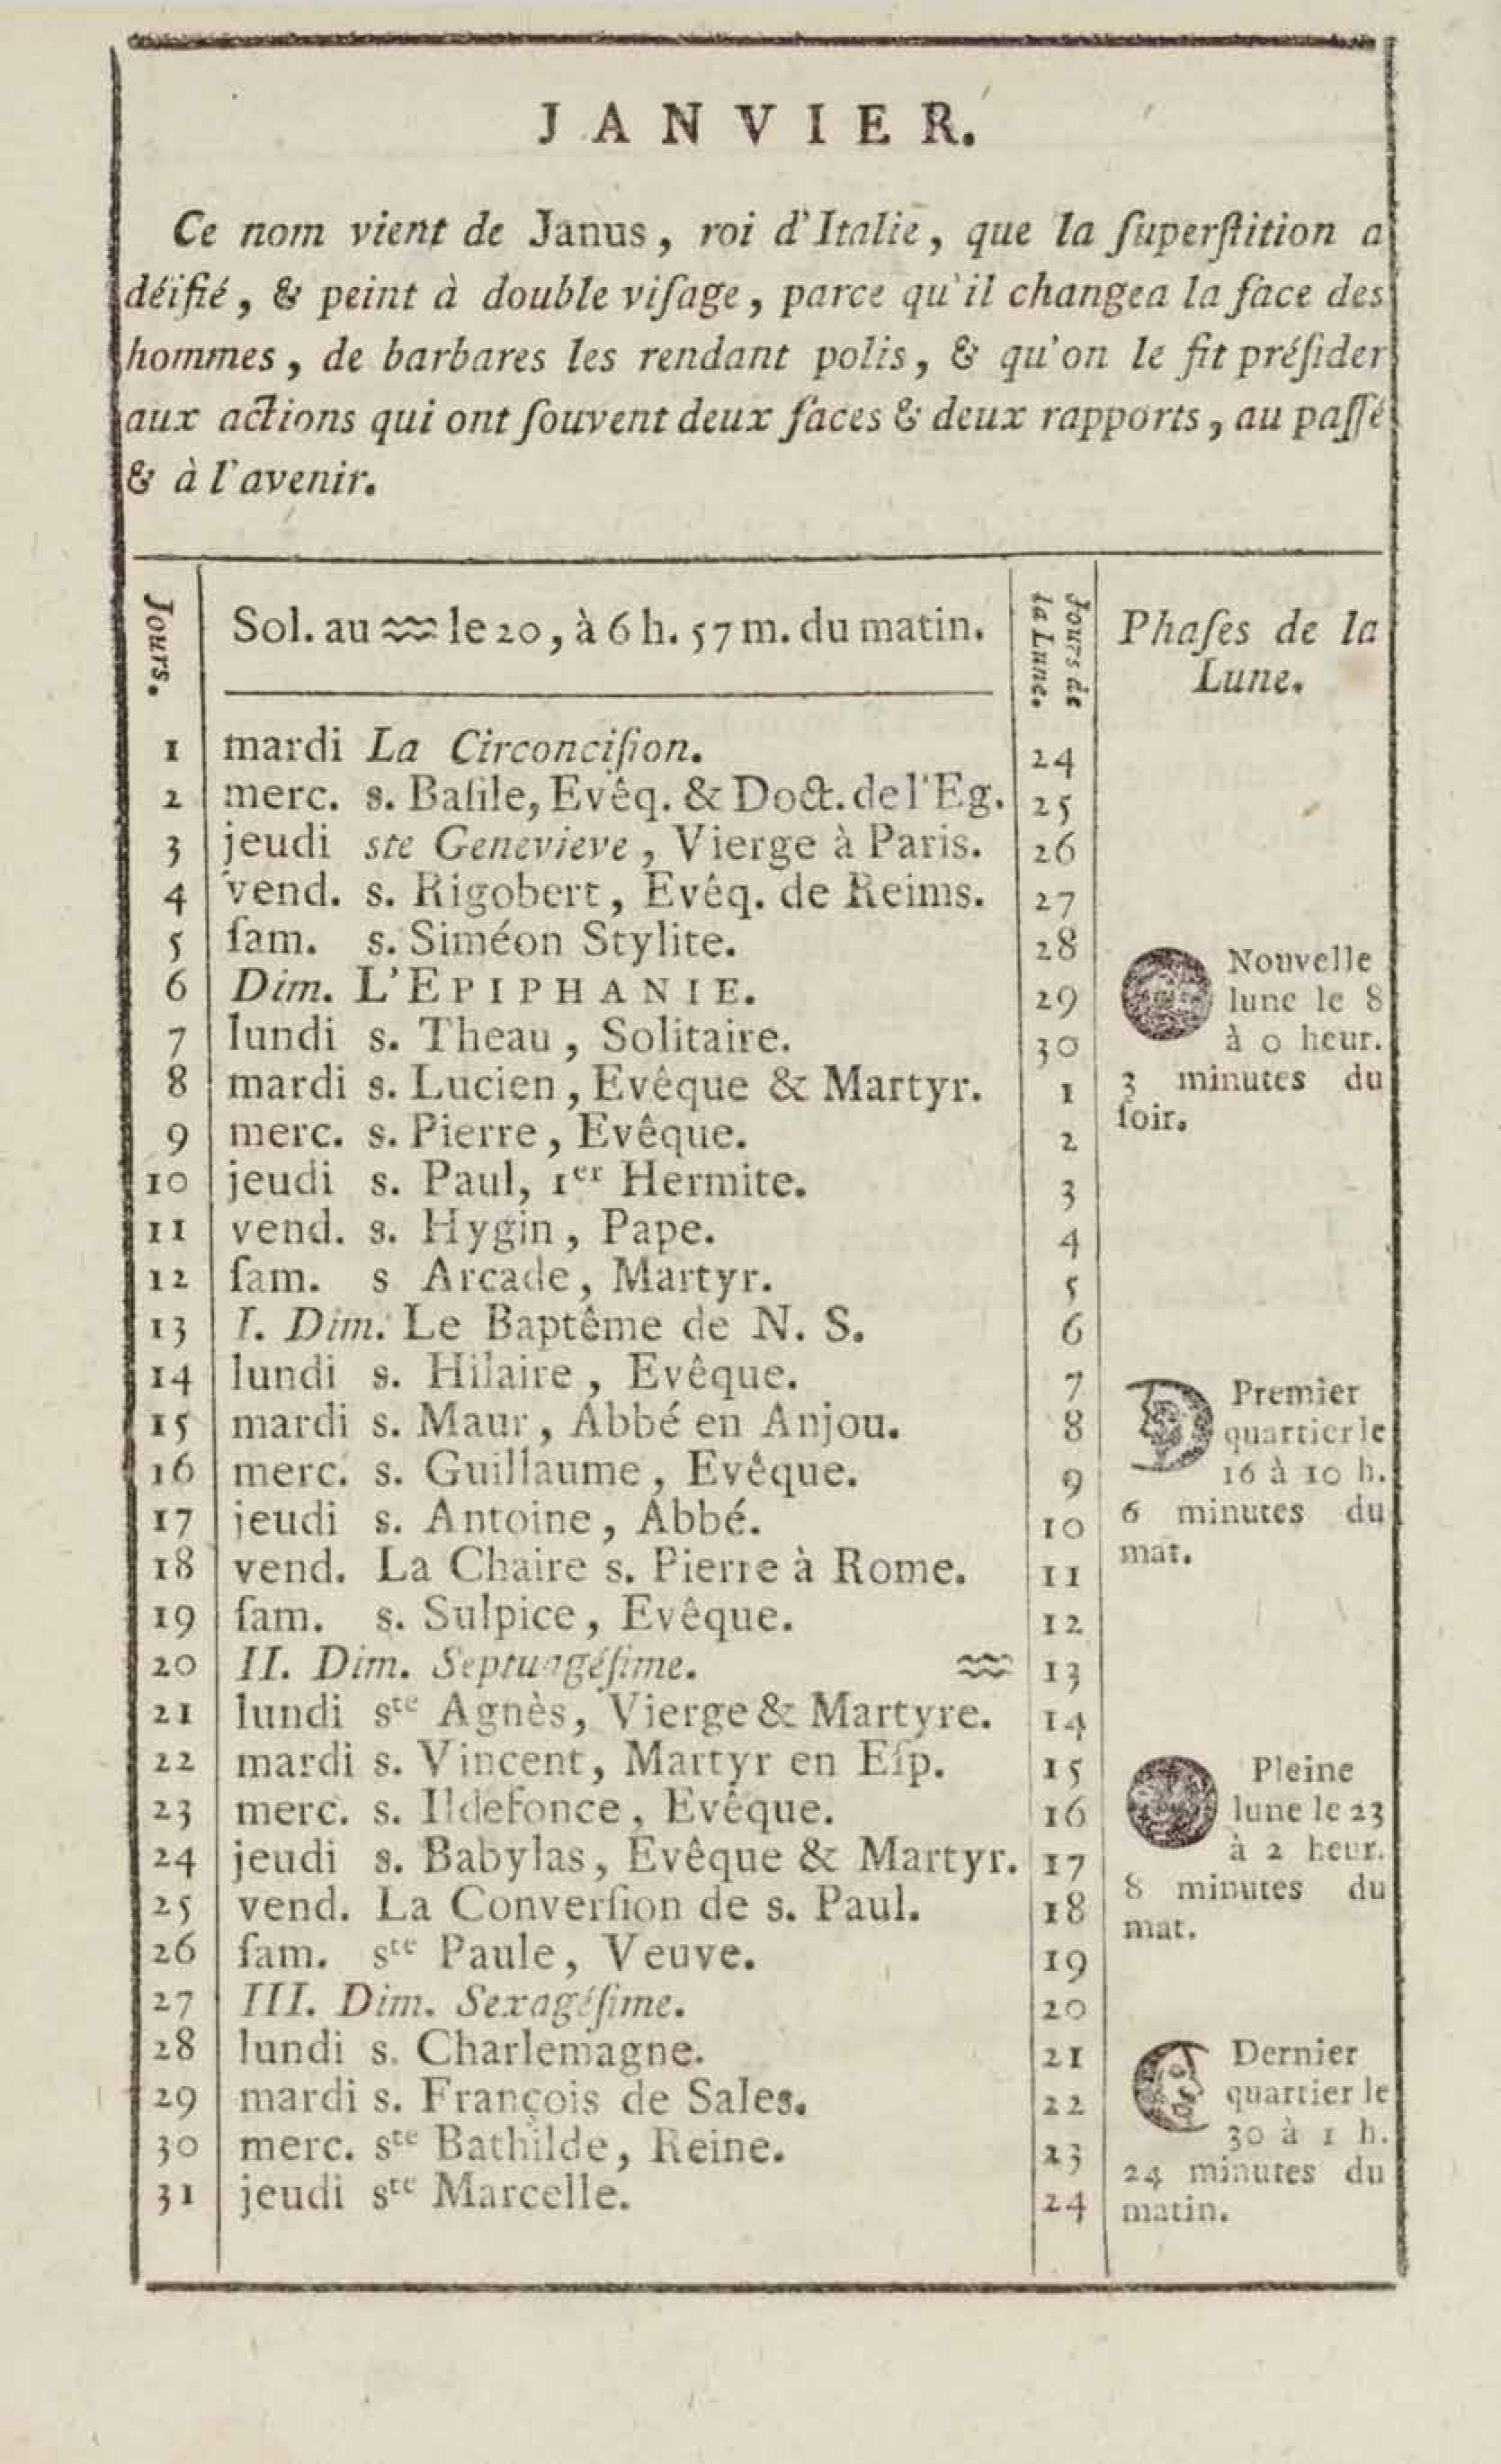 JANVIER.
Ce nom vient de Janus, roi d'Italie, que la ſuperſtition a
déifié, & peint à double viſage, parce qu'il changea la face des
hommes, de barbares les rendant polis, & qu'on le fit préſider
aux actions qui ont ſouvent deux faces & deux rapports, au paſſé
& à l'avenir.
Jours.
Sol. au ♒ le 20, à 6 h. 57 m. du matin.
Jours de la Lune.
Phaſes de la
Lune.
1 mardi La Circonciſion. 24
2 merc. s. Baſile, Evêq. & Doct. de l'Eg. 25
3 jeudi ste Genevieve, Vierge à Paris. 26
4 vend. s. Rigobert, Evêq. de Reims. 27
5 ſam. s. Siméon Stylite. 28
6 Dim. L'EPIPHANIE. 29
7 lundi s. Theau, Solitaire. 30
8 mardi s. Lucien, Evêque & Martyr. 1
9 merc. s. Pierre, Evêque. 2
10 jeudi s. Paul, 1er Hermite. 3
11 vend. s. Hygin, Pape. 4
12 ſam. s Arcade, Martyr. 5
13 I. Dim. Le Baptême de N. S. 6
14 lundi s. Hilaire, Evêque. 7
15 mardi s. Maur, Abbé en Anjou. 8
16 merc. s. Guillaume, Evêque. 9
17 jeudi s. Antoine, Abbé. 10
18 vend. La Chaire s. Pierre à Rome. 11
19 ſam. s. Sulpice, Evêque. 12
20 II. Dim. Septuagéſime. ♒ 13
21 lundi ste Agnès, Vierge & Martyre. 14
22 mardi s. Vincent, Martyr en Eſp. 15
23 merc. s. Ildefonce, Evêque. 16
24 jeudi s. Babylas, Evêque & Martyr. 17
25 vend. La Converſion de s. Paul. 18
26 ſam. ste Paule, Veuve. 19
27 III. Dim. Sexagéſime. 20
28 lundi s. Charlemagne. 21
29 mardi s. François de Sales. 22
30 merc. ste Bathilde, Reine. 23
31 jeudi ste Marcelle. 24
Nouvelle
lune le 8
à 0 heur.
3 minutes du
ſoir.
Premier
quartier le
16 à 10 h.
6 minutes du
mat.
Pleine
lune le 23
à 2 heur.
8 minutes du
mat.
Dernier
quartier le
30 à 1 h.
24 minutes du
matin.